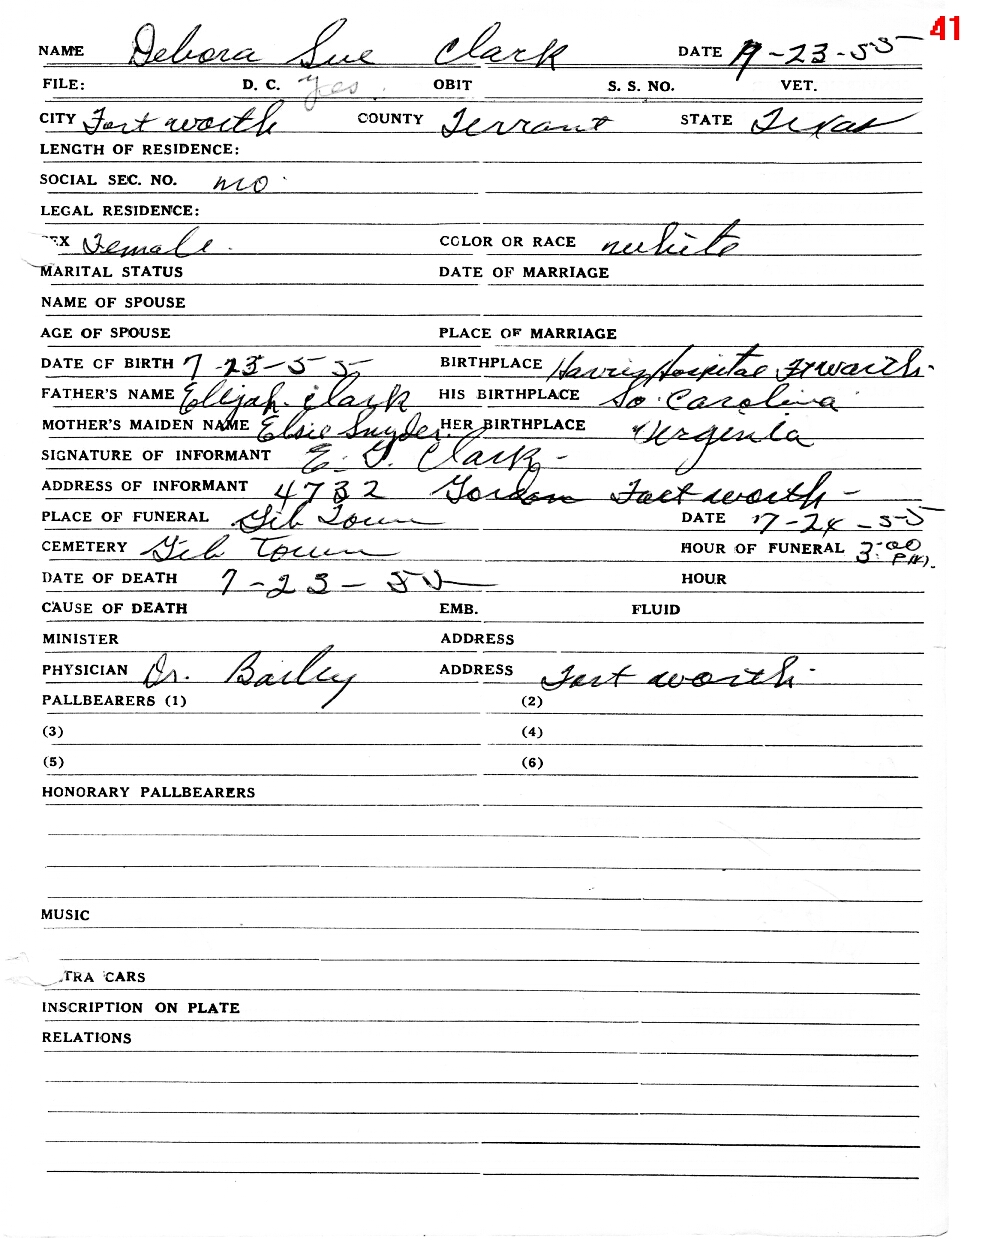 41
NAME Debora Sue Clark DATE 7-23-55
FILE: D. C. yes. OBIT S. S. NO. VET.
CITY Fort worth COUNTY Terrant STATE Texas
LENGTH OF RESIDENCE:
SOCIAL SEC. NO. no
LEGAL RESIDENCE:
EX Female. COLOR OR RACE white
MARITAL STATUS DATE OF MARRIAGE
NAME OF SPOUSE
AGE OF SPOUSE PLACE OF MARRIAGE
DATE OF BIRTH 7-23-55 BIRTHPLACE Harris Hospital Ft worth.
FATHER'S NAME Elijah. Clark HIS BIRTHPLACE So. Carolina
MOTHER'S MAIDEN NAME Elsie Snyder. HER BIRTHPLACE Virgenia
SIGNATURE OF INFORMANT E. G. Clark-
ADDRESS OF INFORMANT 4732 Gordon Fort worth-
PLACE OF FUNERAL Gib Town DATE 7-24-55
CEMETERY Gib Town HOUR OF FUNERAL 3:00 P.M.
DATE OF DEATH 7-23-55 HOUR
CAUSE OF DEATH EMB. FLUID
MINISTER ADDRESS
PHYSICIAN Dr. Bailey ADDRESS Fort worth.
PALLBEARERS (1) (2)
(3) (4)
(5) (6)
HONORARY PALLBEARERS
MUSIC
TRA CARS
INSCRIPTION ON PLATE
RELATIONS